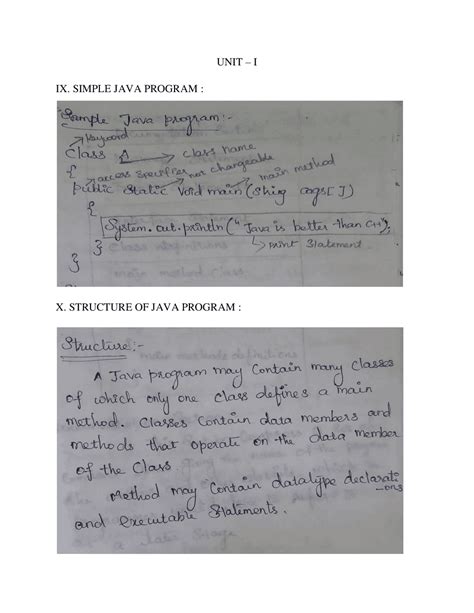 UNIT – I
IX. SIMPLE JAVA PROGRAM :
Sample Java program:-
Keyword
Class A → Class name
{ access specifier not changeable main method
public static void main(String args[])
{
System.out.println("Java is better than C++");
} → print statement
}
X. STRUCTURE OF JAVA PROGRAM :
Structure:-
A Java program may contain many classes
of which only one class defines a main
method. Classes contain data members and
methods that operate on the data member
of the class.
Method may contain datatype declarati
-ons
and executable statements.